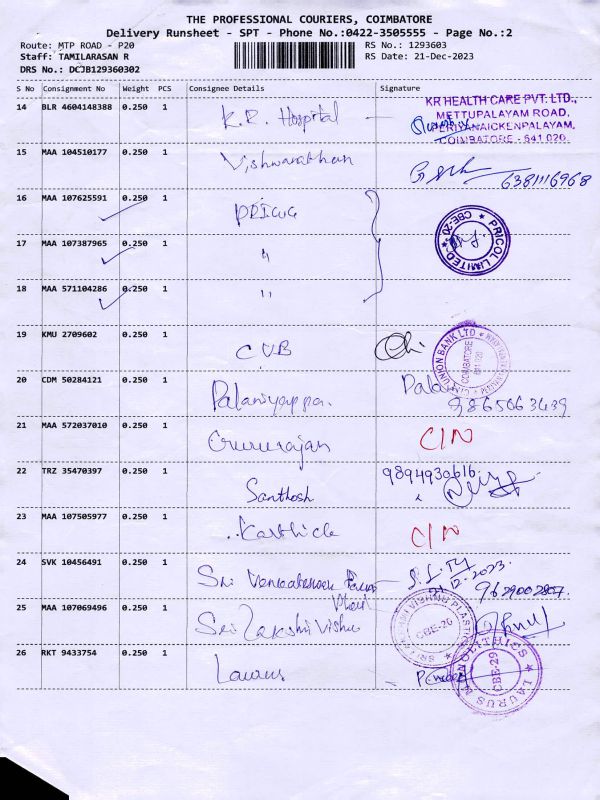 THE PROFESSIONAL COURIERS, COIMBATORE
Delivery Runsheet - SPT - Phone No.:0422-3505555 - Page No.:2
Route: MTP ROAD - P20 RS No.: 1293603
Staff: TAMILARASAN R RS Date: 21-Dec-2023
DRS No.: DCJB129360302
S No Consignment No Weight PCS Consignee Details Signature
14 BLR 4604148388 0.250 1 K.R. Hospital
KR HEALTH CARE PVT. LTD.,
METTUPALAYAM ROAD,
PERIYANAICKENPALAYAM,
COIMBATORE - 641 020.
15 MAA 104510177 0.250 1 6381116968
16 MAA 107625591 0.250 1 PRICOL
PRICOL LIMITED
CBE-20
17 MAA 107387965 0.250 1 "
18 MAA 571104286 0.250 1 "
19 KMU 2709602 0.250 1 CUB
UNION BANK LTD
COIMBATORE
641 020
20 CDM 50284121 0.250 1 Palaniyappa. Palani
9865063439
21 MAA 572037010 0.250 1 Gururajan C/N
22 TRZ 35470397 0.250 1 Santhosh 9894930616
23 MAA 107505977 0.250 1 Karthick C/N
24 SVK 10456491 0.250 1 Sri
21.12.2023
25 MAA 107069496 0.250 1 Sri Lakshmi Vishnu
SRI VISHNU PLASTIC
CBE-20
26 RKT 9433754 0.250 1 Laurus
LAURUS MONOLITHICS
CBE-29